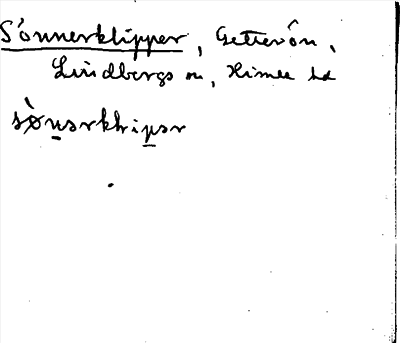 Sönnerklipper, Getterön,
Lindbergs sn, Himle hd
sø̀nərklipər